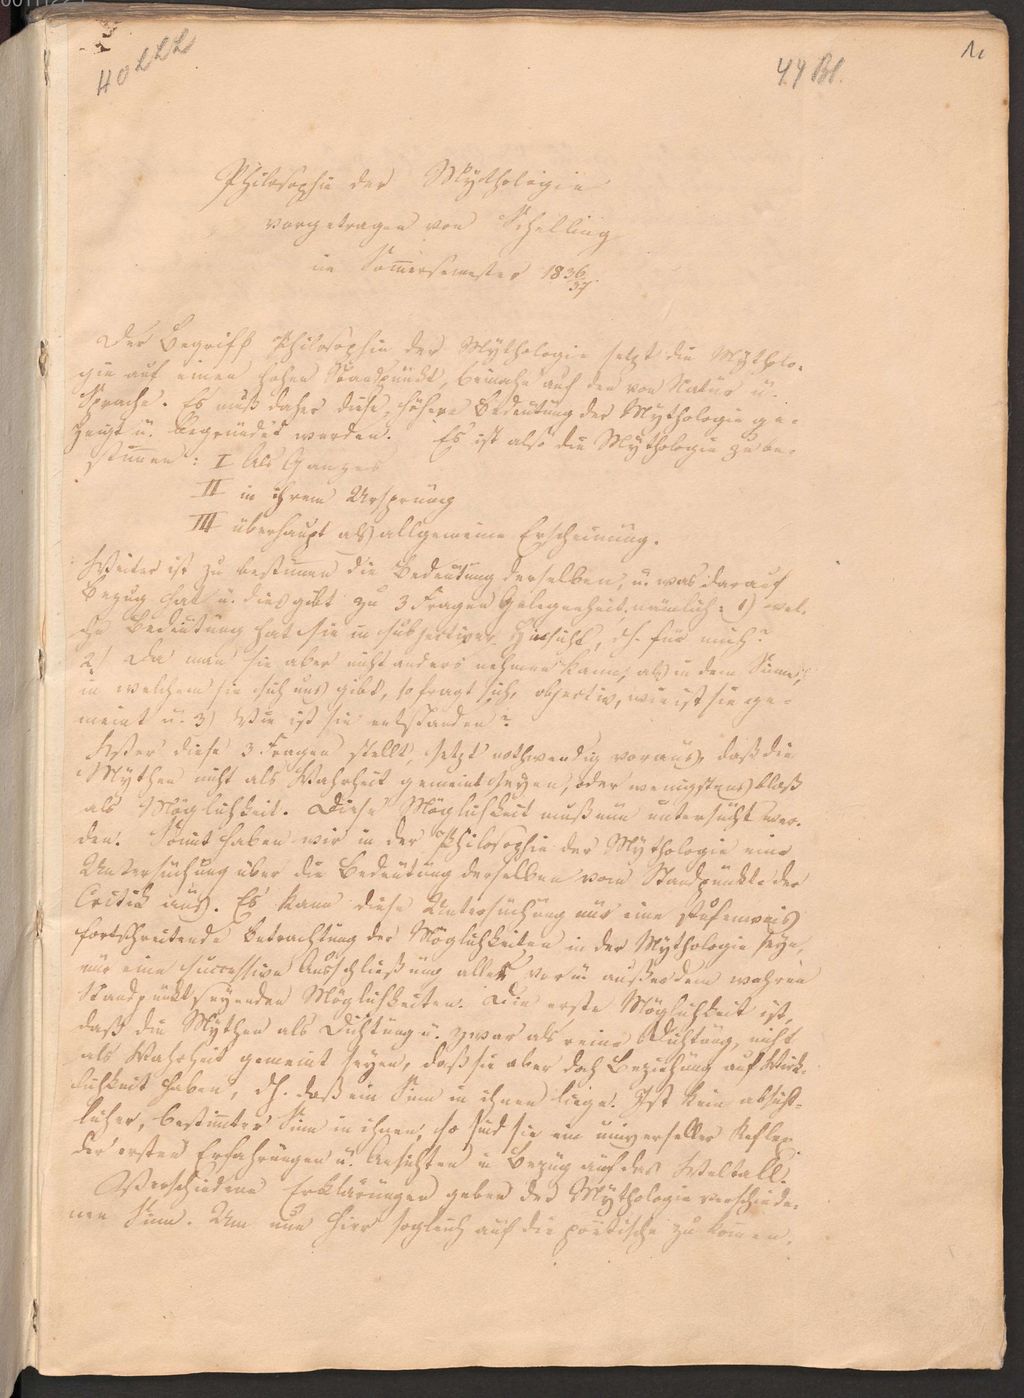 40 LLL
44 Bl.
1.
Philosophie der Mythologie
vorgetragen von Schelling
im Som̅ersemester 1836/37.
Der Begriff Philosophie der Mythologie setzt die Mytholo-
gie auf einen hohen Standpunkt, beinahe auf den von Natur u.
Sprache. Es muß daher diese höhere Bedeutung der Mythologie ge-
zeigt u. begründet werden. Es ist also die Mythologie zu be-
stim̅en: I Als Ganzes
II in ihrem Ursprung
III überhaupt als allgemeine Erscheinung.
Weiter ist zu bestim̅en die Bedeutung derselben, u. was darauf
Bezug hat u. dies gibt zu 3 Fragen Gelegenheit, nämlich: 1) wel-
che Bedeutung hat sie in subjectiver Hinsicht, dh. für mich?
2) Da man sie aber nicht anders nehmen kann, als in dem Sinne,
in welchem sie sich uns gibt, so fragt sich, objectiv, wie ist sie ge-
meint u. 3) Wie ist sie entstanden?
Wer diese 3 Fragen stellt, setzt nothwendig voraus, daß die
Mythen nicht als Wahrheit gemeint seyen, oder wenigstens bloß
als Möglichkeit. Diese Möglichkeit muß nun untersucht wer-
den. Somit haben wir in der Philosophie der Mythologie eine
Untersuchung über die Bedeutung derselben vom Standpunkte der
Critik aus. Es kann diese Untersuchung nur eine stufenweis
fortschreitende Betrachtung der Möglichkeiten in der Mythologie seyn,
nur eine successive Ausschließung aller vor u. außer dem wahren
Standpunkt seyenden Möglichkeiten. Die erste Möglichkeit ist,
daß die Mythen als Dichtung u. zwar als reine Dichtung, nicht
als Wahrheit gemeint seyen, daß sie aber doch Beziehung auf Wirk-
lichkeit haben, dh. daß ein Sinn in ihnen liege. Ist kein absicht-
licher, bestim̅ter Sinn in ihnen, so sind sie ein universeller Reflex
der ersten Erfahrungen u. Ansichten in Bezug auf das Weltall.
Verschiedene Erklärungen geben der Mythologie verschiede-
nen Sinn. Um nun hier sogleich auf die poëtische zu kom̅en,